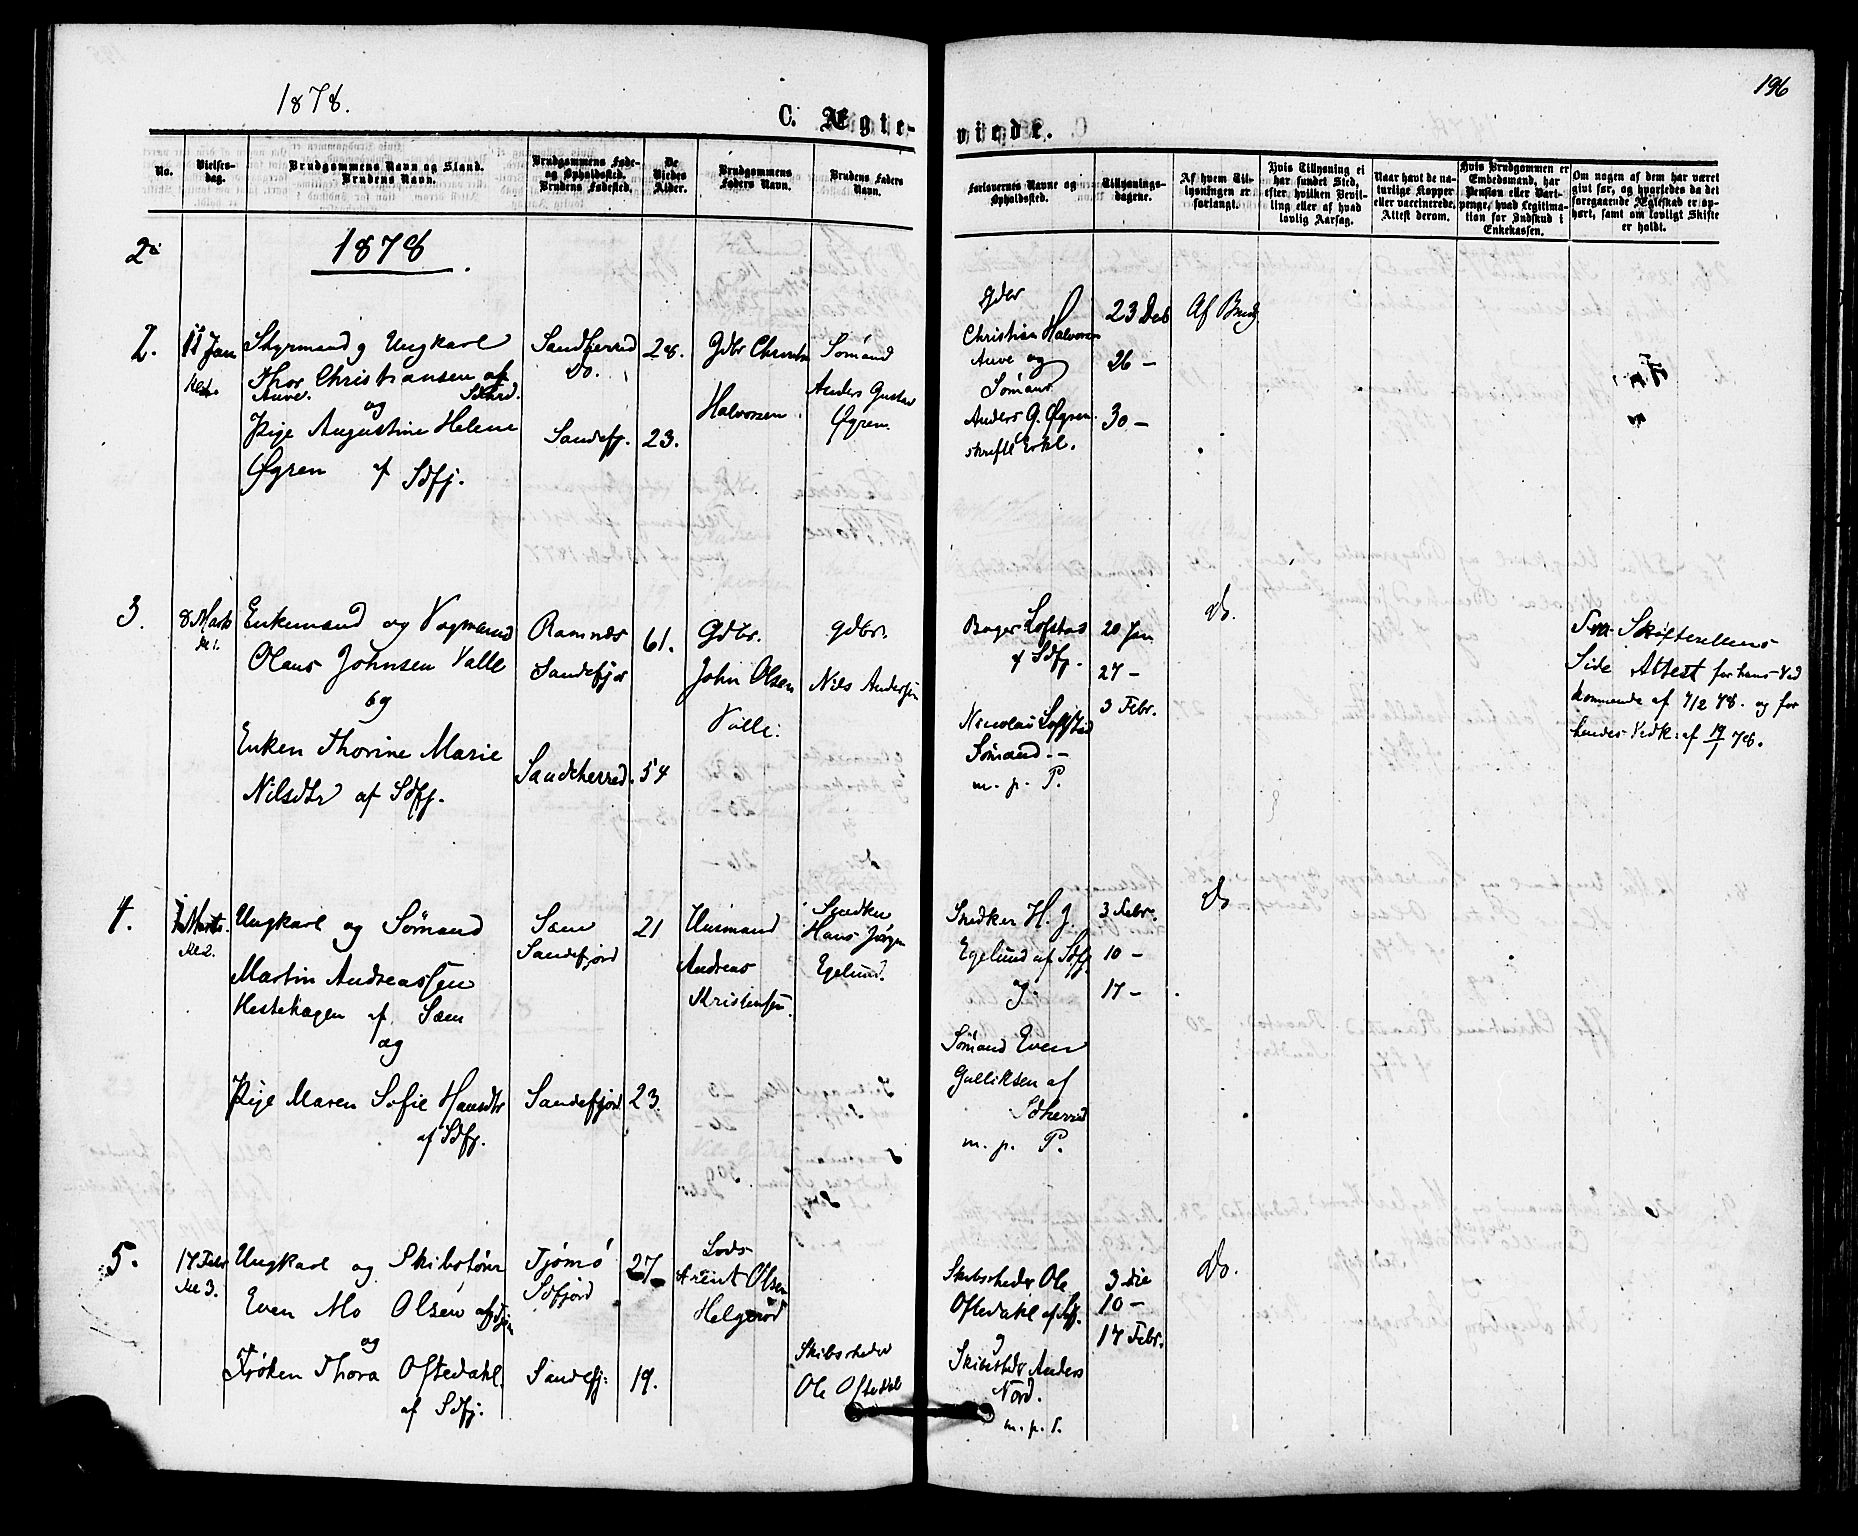 1878.
C. Ægte-
No.
Vielses-
dag.
Brudgommens Navn og Stand.
Brudens Navn.
Brudgommens Føde-
og Opholdssted.
Brudens Fødested.
De
Viedes
Alder.
Brudgommens
Faders Navn.
Brudens Faders
Navn.
1878
2.
11 Jan
Styrmand og Ungkarl
Thor Christiansen af
Auve.
og
Pige Augustine Helene
Øgren af Sdfj.
Sandherred
Do.
Sandefj.
28.
23.
Gdbr
Halvorsen.
Sømand
Anders Gustav
Øgren.
3.
8 Marts
Kl 1.
Enkemand og Vognmand
Olaus Johnsen Valle
og
Enken Thorine Marie
Nilsdtr af Sdfj.
Ramnæs
Sandefjor
Sandeherred.
61.
54
Gdbr.
John Olsen
Valle.
Gdbr.
Nils Andersen
4.
Marts.
Kl 2.
Ungkarl og Sømand
Martin Andreassen
Hestehagen af Sæm
og
Pige Maren Sofie Hansdtr
af Sdfj.
Sæm
Sandefjord
Sandefjord
21
23.
Husmand
Andreas
Kristensen.
Snedker
Hans Jørgen
Egelund.
5.
17 Febr
Kl 3.
Ungkarl og Skibsfører
Even Mo Olsen af
og
Frøken Thora Oftedahl
af Sdfj.
Tjømø
Sdfjord
Sandefj:
27
19.
Lods
Arent Olsen
Helgerød
Skibsreder
Ole Oftedal
196
viede.
Forlovernes Navne og
Opholdssted.
Tillysnings-
dagene.
Af hvem Til-
lysningen er
forlangt.
Hvis Tillysning ei
har fundet Sted,
efter hvilken Bevil-
ling eller af hvad
lovlig Aarsag.
Naar havt de na-
turlige Kopper
eller vaccinerede,
Attest derom.
Hvis Brudgommen er
Embedsmand, har
Pension eller Vart-
penge, hvad Legitima-
tion for Indskud i
Enkekassen.
Om nogen af dem har været
gift før, og hvorledes da det
foregaaende Ægteskab er op-
hørt, samt om lovligt Skifte
er holdt.
Gdbr
Christian Halvorsen
Auve og
Sømand
Anders G. Øgren.
skriftl Erkl.
23 Deb
26 –
30 –
Af Brudg
Bager Lofstad
af Sdfj.
Nicolai Lofstad
Sømand. –
m. p. P.
20 Jan
27 –
3 Febr.
Do.
Skifterettens
Side Attest for hans Ved
kommende af 7/2 78. og for
hendes Vedk: af 17/1 78.
Snedker H. J.
Egelund af Sdfj.
og
Sømand Even
Gulliksen af
Sdherred
m. p. P.
3 Febr.
10 –
17 –
Do
Skibsreder Ole
Oftedahl af Sdfj.
og
Skibsreder Anders
Nord.
m. p. P.
3 die
10 –
17 Febr.
Do.